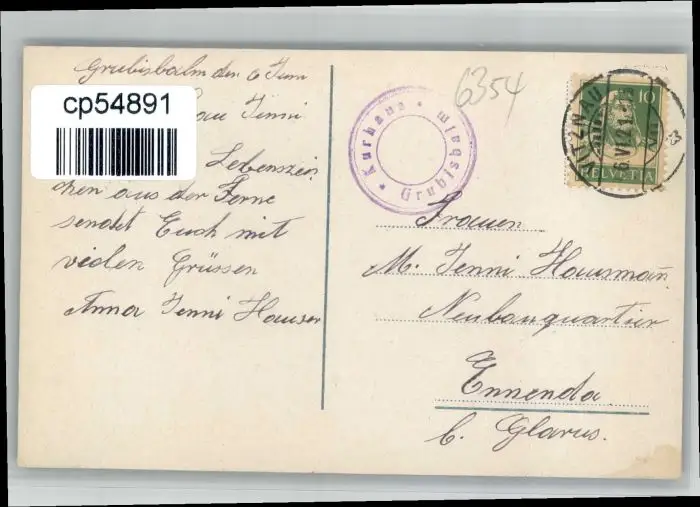 Grubisbalm den 6 Juni
cp54891
Jenni
Lebenszei
chen aus der Ferne
sendet Euch mit
vielen Grüssen
Anna Jenni Hauser
Kurhaus * Grubisbalm *
6354
VITZNAU
6.VI.21
10
HELVETIA
Frauen
M. Jenni Hausman̄
Neubauquartier
Ennenda
b. Glarus.